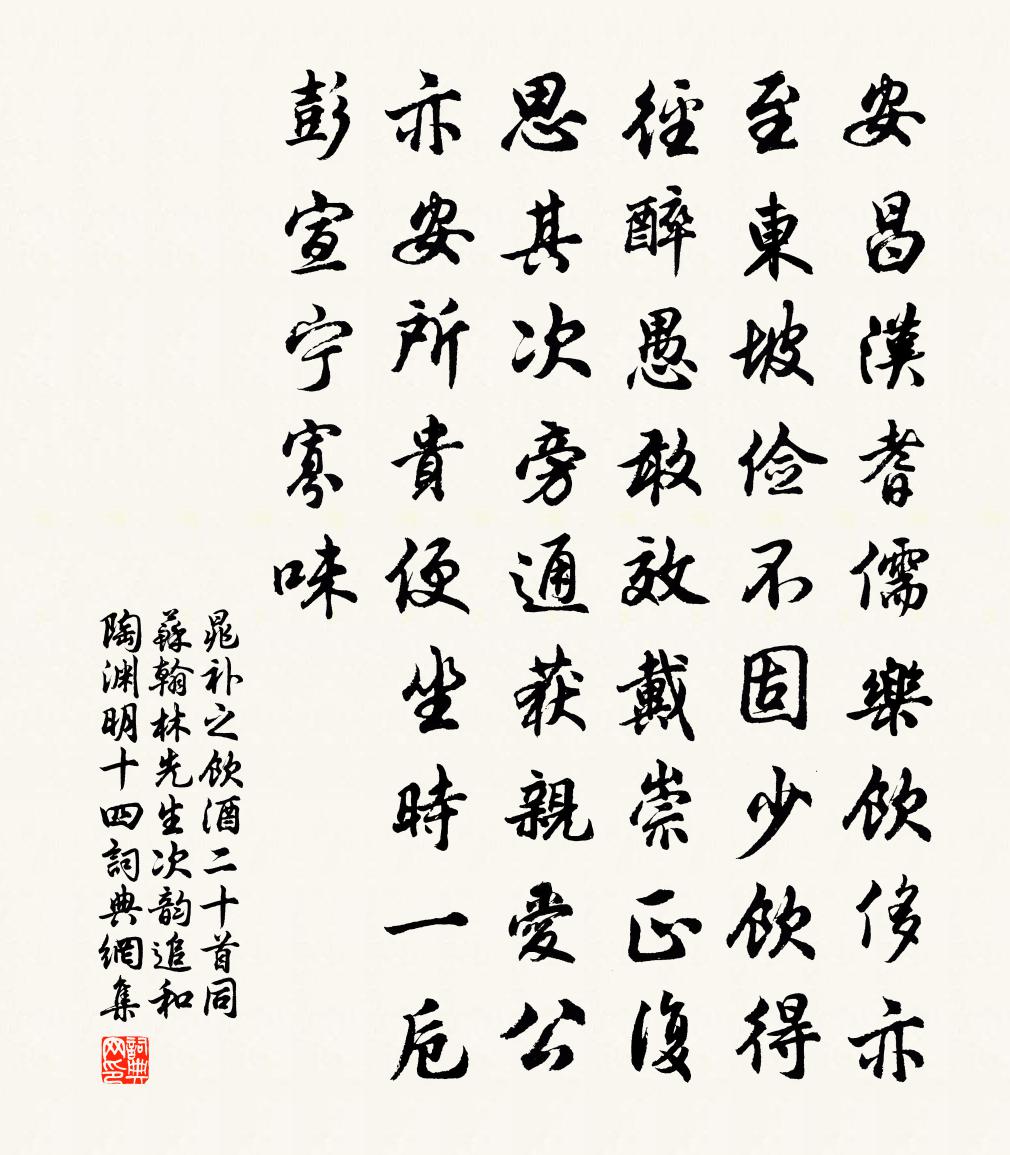 安昌漢耆儒樂飲侈亦
至東坡俭不固少飲得
徑醉愚敢效戴崇正復
思其次旁通获親愛公
亦安所貴便坐時一卮
彭宣宁寡味
晁补之飲酒二十首同
蘇翰林先生次韵追和
陶渊明十四詞典網集
詞典网印